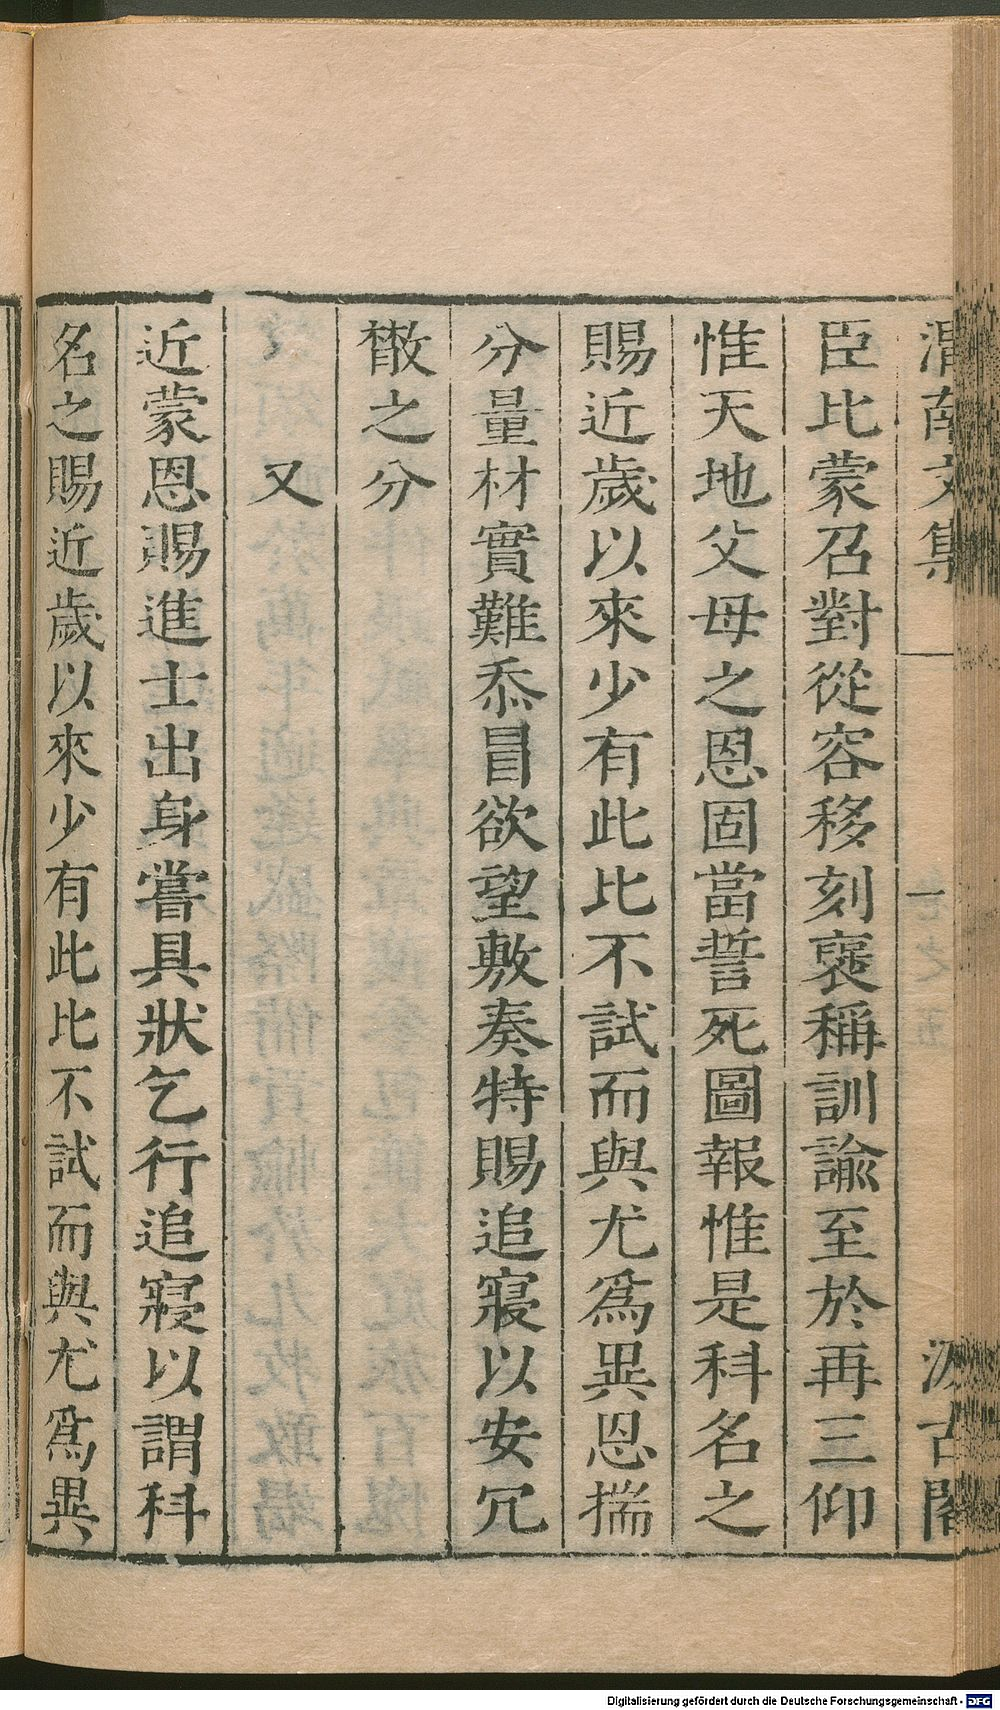 渭南文集 汲古閣
臣比蒙召對從容移刻褒稱訓諭至於再三仰
惟天地父母之恩固當誓死圖報惟是科名之
賜近歲以來少有此比不試而與尤爲異恩揣
分量材實難忝冒欲望敷奏特賜追寢以安冗
散之分
又
近蒙恩賜進士出身嘗具狀乞行追寢以謂科
名之賜近歲以來少有此比不試而與尤爲異
Digitalisierung gefördert durch die Deutsche Forschungsgemeinschaft - DFG